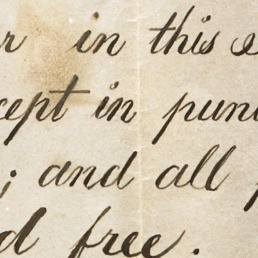 r in this
cept in pun
; and all
d free.